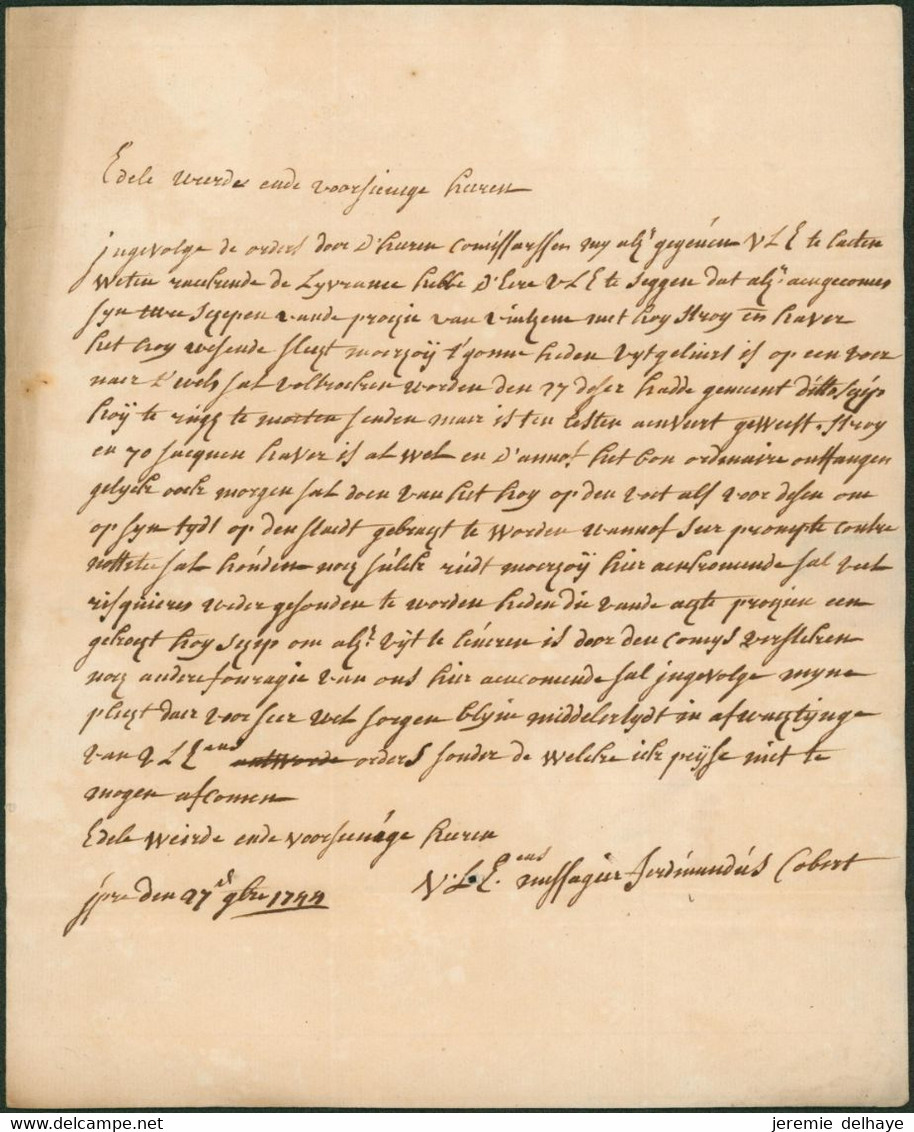 Edele weerde ende voorsienige heeren
jngevolge de orders door d'heeren Comissarissen my alhr gegeven VLE te laeten
weten raeckende de Lyvrancie hebbe d'Eere VLE te seggen dat alhr aengecomen
syn twee scepen vande prochie van vinkem met hoy stroy en haver
het hoy wesende slegt moerhoÿ t'gonne heden uytgelievert is op een voer
naer t'welk sal voltrocken worden den 27 deser hadde gemeent ditto schip
hoÿ te rugg te moeten senden maer is ten lesten aenveert geweest. stroy
en 70 sacquen haver is al wel en d'annof het bon ordinaire ontfangen
gelyck oock morgen sal doen van het hoy op den voet als voor desen om
op syn tydt op den staedt gebragt te worden wannof seer prompte contre
notitie sal houden nog sulck moerhoÿ hier aenkomende sal veel
risquieren weder gesonden te worden heden die vande prochien een
hoy schip om alhr uÿt te leveren is door den Comys versteken
nog andere fouragie van ons hier aencomende sal jngevolge myne
pligt daer voor seer wel sorgen blyve middelertydt in afwagtynge
van VLEens antworde orders sonder de welcke ick peyse niet te
mogen afcomen
Edele weirde ende voorsienige heeren
V.L.E.ens messagier ferdinandus Cobert
jpre den 27 9bre 1744
jeremie delhaye